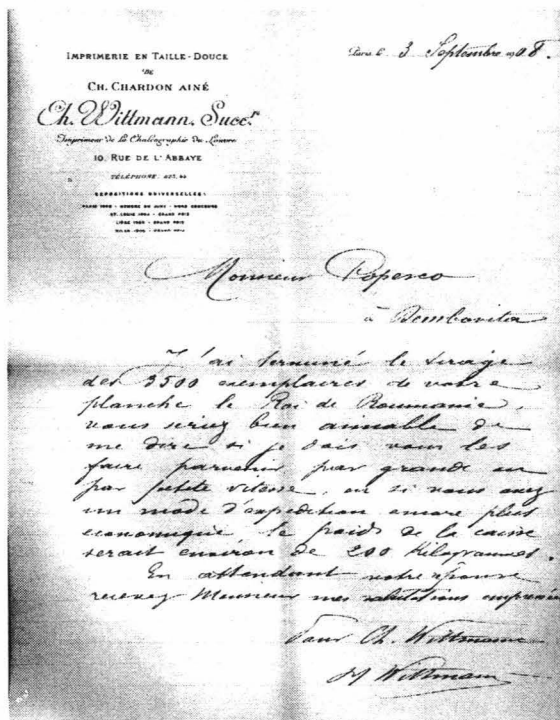 IMPRIMERIE EN TAILLE-DOUCE
DE
CH. CHARDON AINÉ
Ch. Wittmann, Succ.r
Imprimeur de la Chalcographie du Louvre
10, RUE DE L'ABBAYE
TÉLÉPHONE
EXPOSITIONS UNIVERSELLES:
PARIS 1900 - MEMBRE DU JURY - HORS CONCOURS
ST. LOUIS 1904 - GRAND PRIX
LIÈGE 1905 - GRAND PRIX
MILAN 1906 - GRAND PRIX
Paris le 3 Septembre 1908.
Monsieur Popesco
à Dembovitza
J'ai terminé le tirage
des 3500 exemplaires de votre
planche le Roi de Roumanie,
vous seriez bien aimable de
me dire si je dois vous les
faire parvenir par grande ou
par petite vitesse, ou si vous avez
un mode d'expedition encore plus
economique, le poids de la caisse
serait environ de 200 Kilogrammes.
En attendant votre réponse
recevez Monsieur mes salutations empressées
Pour Ch. Wittmann
Wittmann